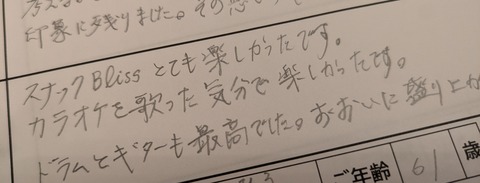 印象に残りました。その
スナックBlissとても楽しかったです。
カラオケを歌った気分で楽しかったです。
ドラムとギターも最高でした。おおいに盛り上が
ご年齢 61 歳